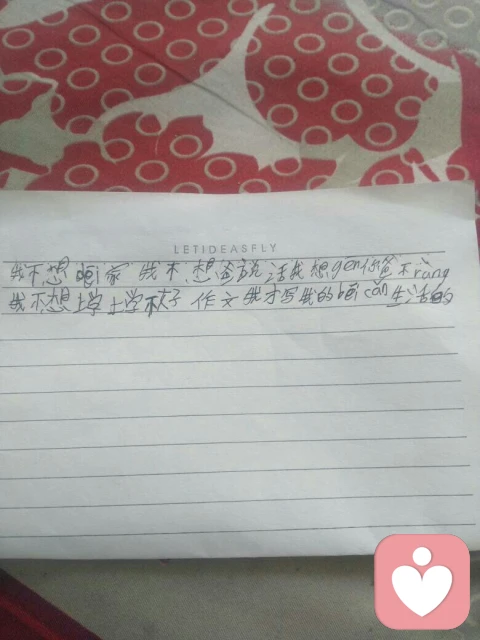 LETIDEASFLY
我不想 huí 家 我不想爸说话我想gen你爸不ràng
我不想上学上学校 作文我才写我的 bēi cǎn 生活的